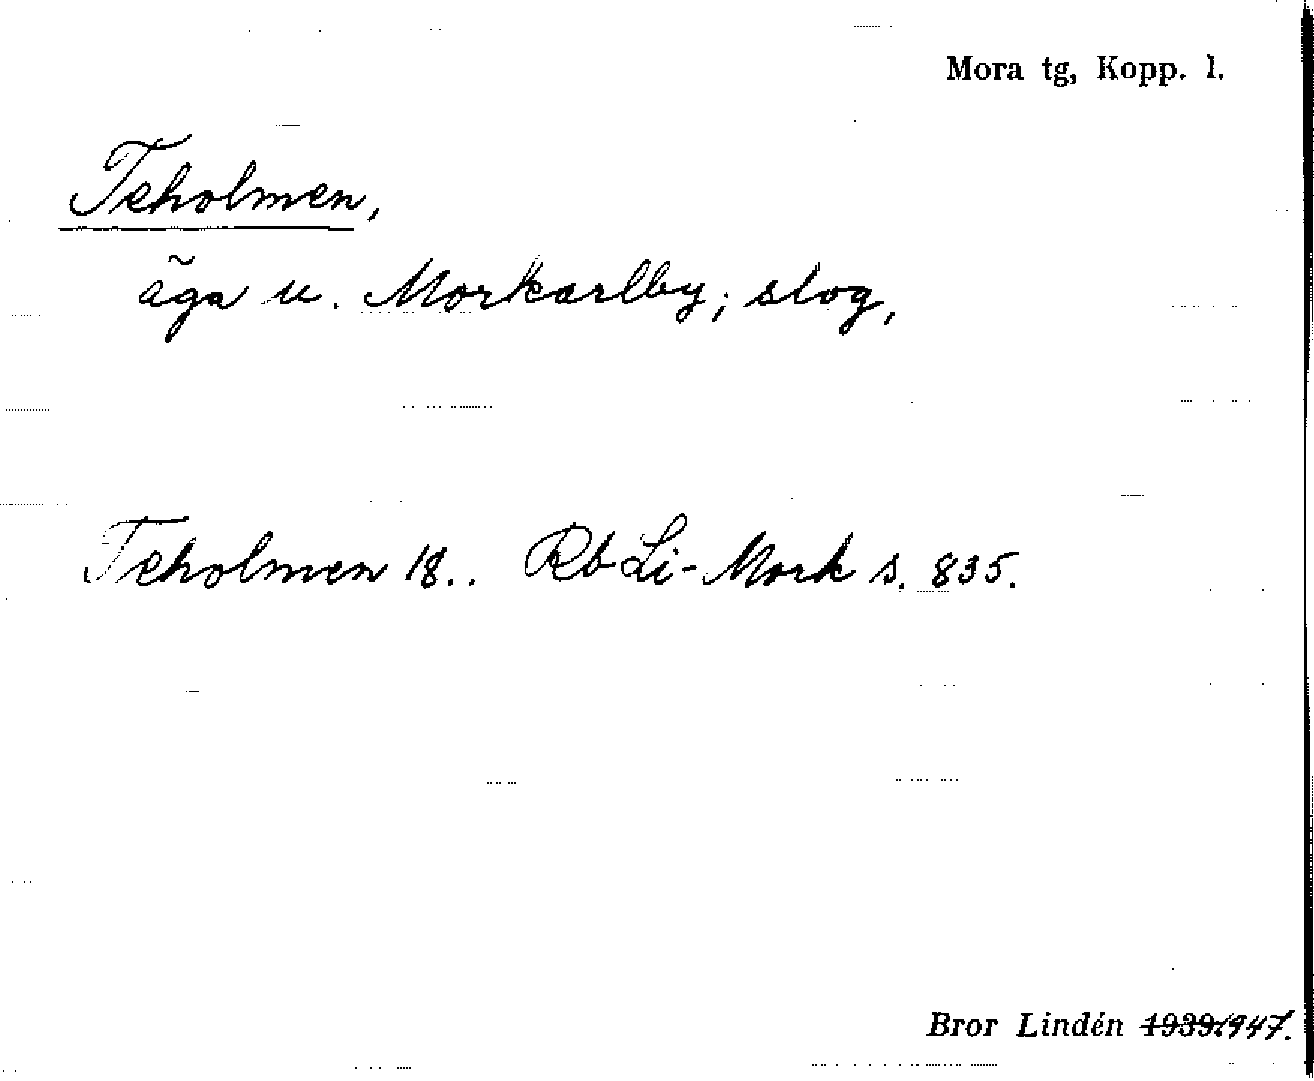 Mora tg, Kopp. l.
Teholmen,
äga u. Morkarlby; slog,
Teholmen 18.. Rb Li-Mork s. 835.
Bror Lindén 1939 1947.